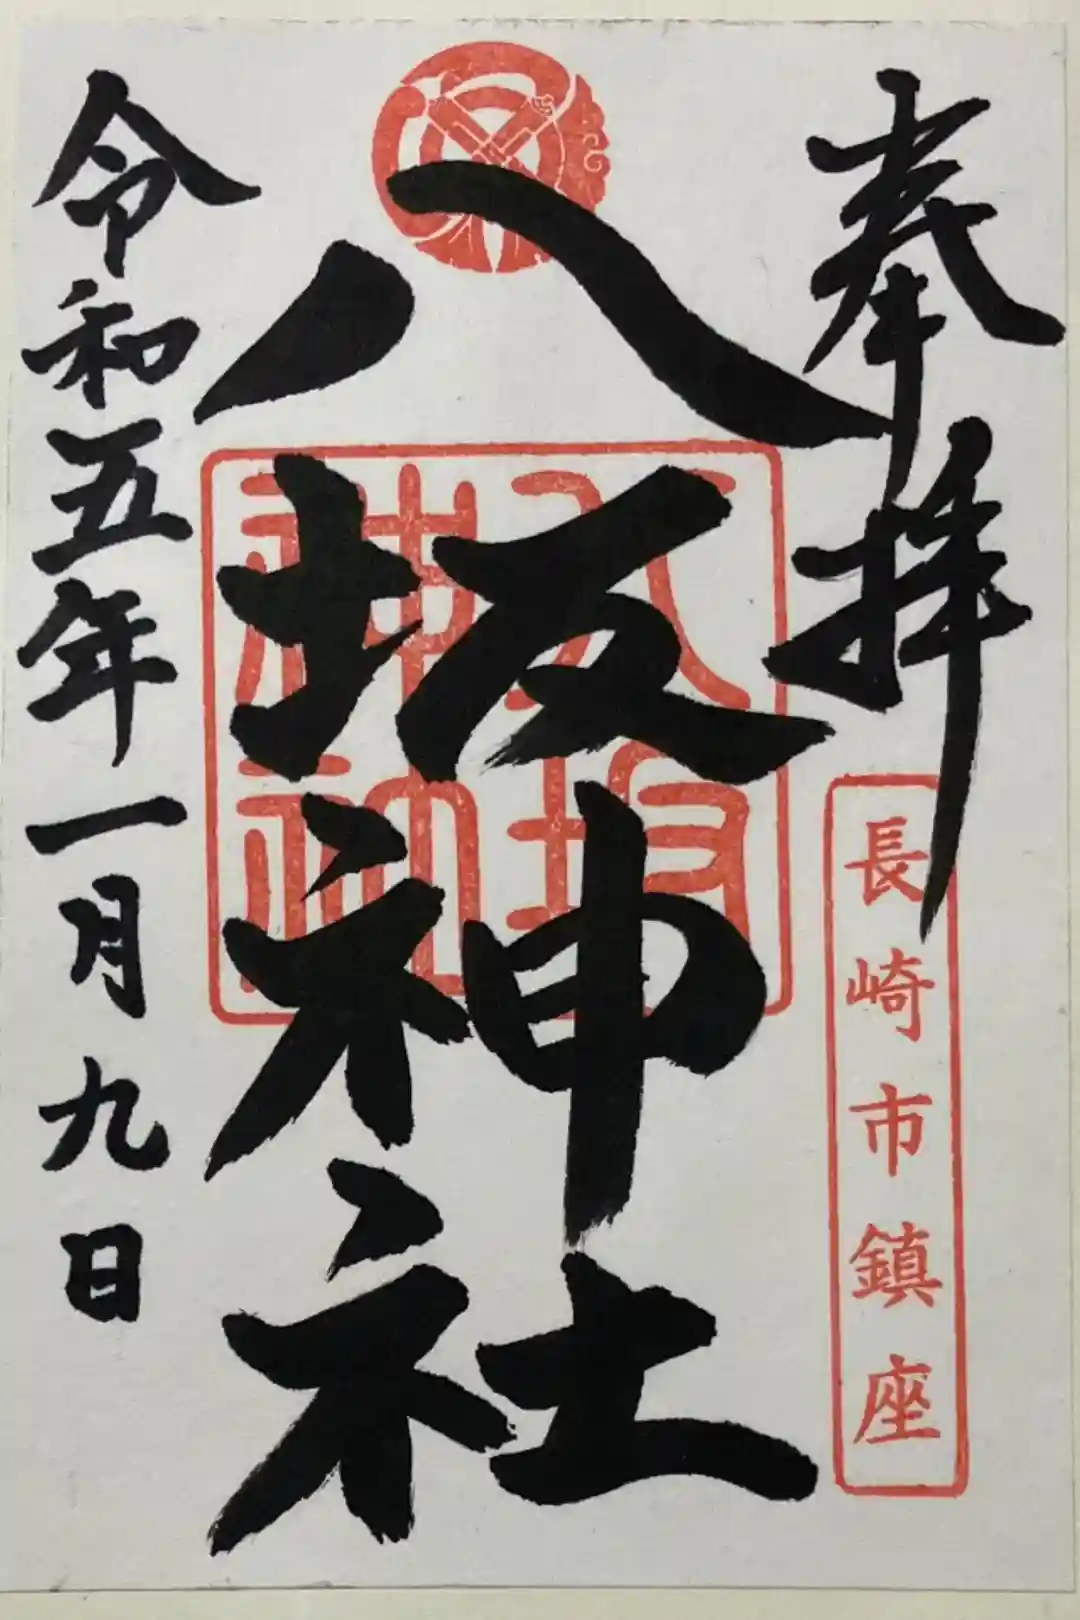 奉拝
長崎市鎮座
八坂神社
八坂神社
令和五年一月九日